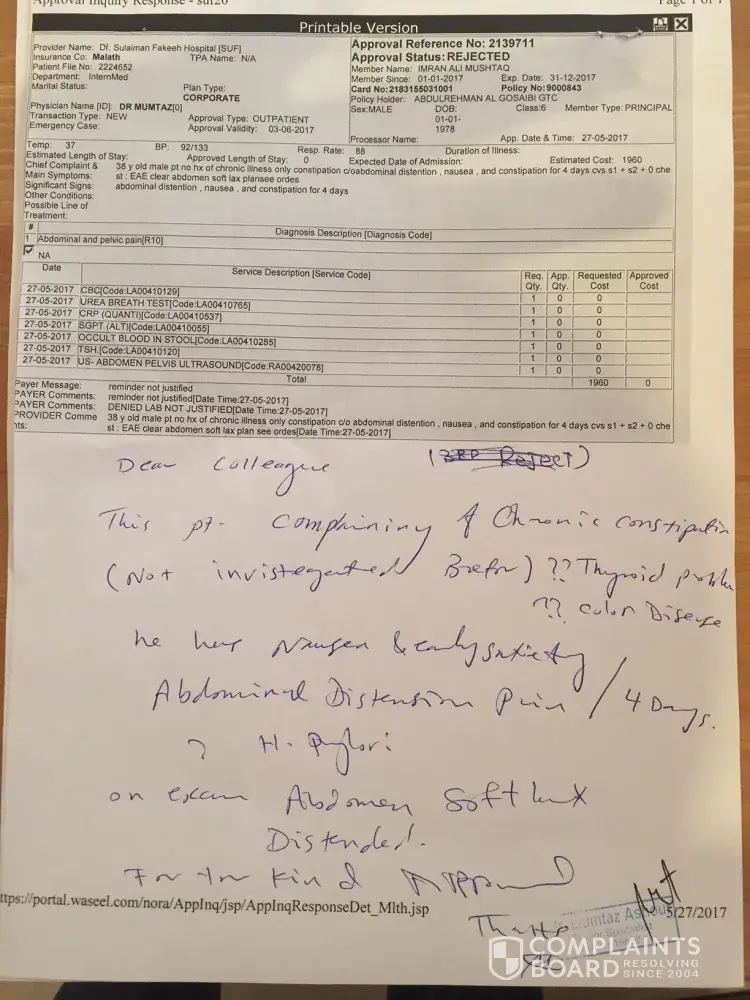 Approval Inquiry Response - suf20
Page 1 of 1
Printable Version
Provider Name: Dr. Sulaiman Fakeeh Hospital [SUF]
Insurance Co: Malath TPA Name: N/A
Patient File No: 2224652
Department: InternMed
Marital Status: Plan Type:
CORPORATE
Physician Name [ID]: DR MUMTAZ[0]
Transaction Type: NEW Approval Type: OUTPATIENT
Emergency Case: Approval Validity: 03-06-2017
Approval Reference No: 2139711
Approval Status: REJECTED
Member Name: IMRAN ALI MUSHTAQ
Member Since: 01-01-2017 Exp. Date: 31-12-2017
Card No:2183155031001 Policy No:9000843
Policy Holder: ABDULREHMAN AL GOSAIBI GTC
Sex:MALE DOB: 01-01-1978 Class:6 Member Type: PRINCIPAL
Processor Name: App. Date & Time: 27-05-2017
Temp: 37 BP: 92/133 Resp. Rate: 88 Duration of Illness:
Estimated Length of Stay: Approved Length of Stay: 0 Expected Date of Admission: Estimated Cost: 1960
Chief Complaint & Main Symptoms: 38 y old male pt no hx of chronic illness only constipation c/oabdominal distention , nausea , and constipation for 4 days cvs s1 + s2 + 0 che
st : EAE clear abdomen soft lax plansee ordes
Significant Signs: abdominal distention , nausea , and constipation for 4 days
Other Conditions:
Possible Line of
Treatment:
# Diagnosis Description [Diagnosis Code]
1 Abdominal and pelvic pain[R10]
NA
Date Service Description [Service Code] Req. Qty. App. Qty. Requested Cost Approved Cost
27-05-2017 CBC[Code:LA00410129] 1 0 0
27-05-2017 UREA BREATH TEST[Code:LA00410765] 1 0 0
27-05-2017 CRP (QUANTI)[Code:LA00410537] 1 0 0
27-05-2017 SGPT (ALT)[Code:LA00410055] 1 0 0
27-05-2017 OCCULT BLOOD IN STOOL[Code:LA00410285] 1 0 0
27-05-2017 TSH[Code:LA00410120] 1 0 0
27-05-2017 US- ABDOMEN PELVIS ULTRASOUND[Code:RA00420078] 1 0 0
Total 1960 0
Payer Message: reminder not justified
PAYER Comments: reminder not justified[Date Time:27-05-2017]
PAYER Comments: DENIED LAB NOT JUSTIFIED[Date Time:27-05-2017]
PROVIDER Comments: 38 y old male pt no hx of chronic illness only constipation c/o abdominal distention , nausea , and constipation for 4 days cvs s1 + s2 + 0 che
st : EAE clear abdomen soft lax plan see ordes[Date Time:27-05-2017]
Dear Colleague (3RD REJECT)
This pt- Complaining of Chronic constipation
(Not invistegathed Befor) ?? Thyroid proble
?? colon Disease
he has Nausea & early satiety
Abdominal Distension Pain / 4 Days.
? H. Pylori
on exam Abdomen Soft lax
Distended.
For Your Kind Approval
ttps://portal.waseel.com/nora/AppInq/jsp/AppInqResponseDet_Mlth.jsp
5/27/2017
Thanks
COMPLAINTS
BOARD RESOLVING
SINCE 2004